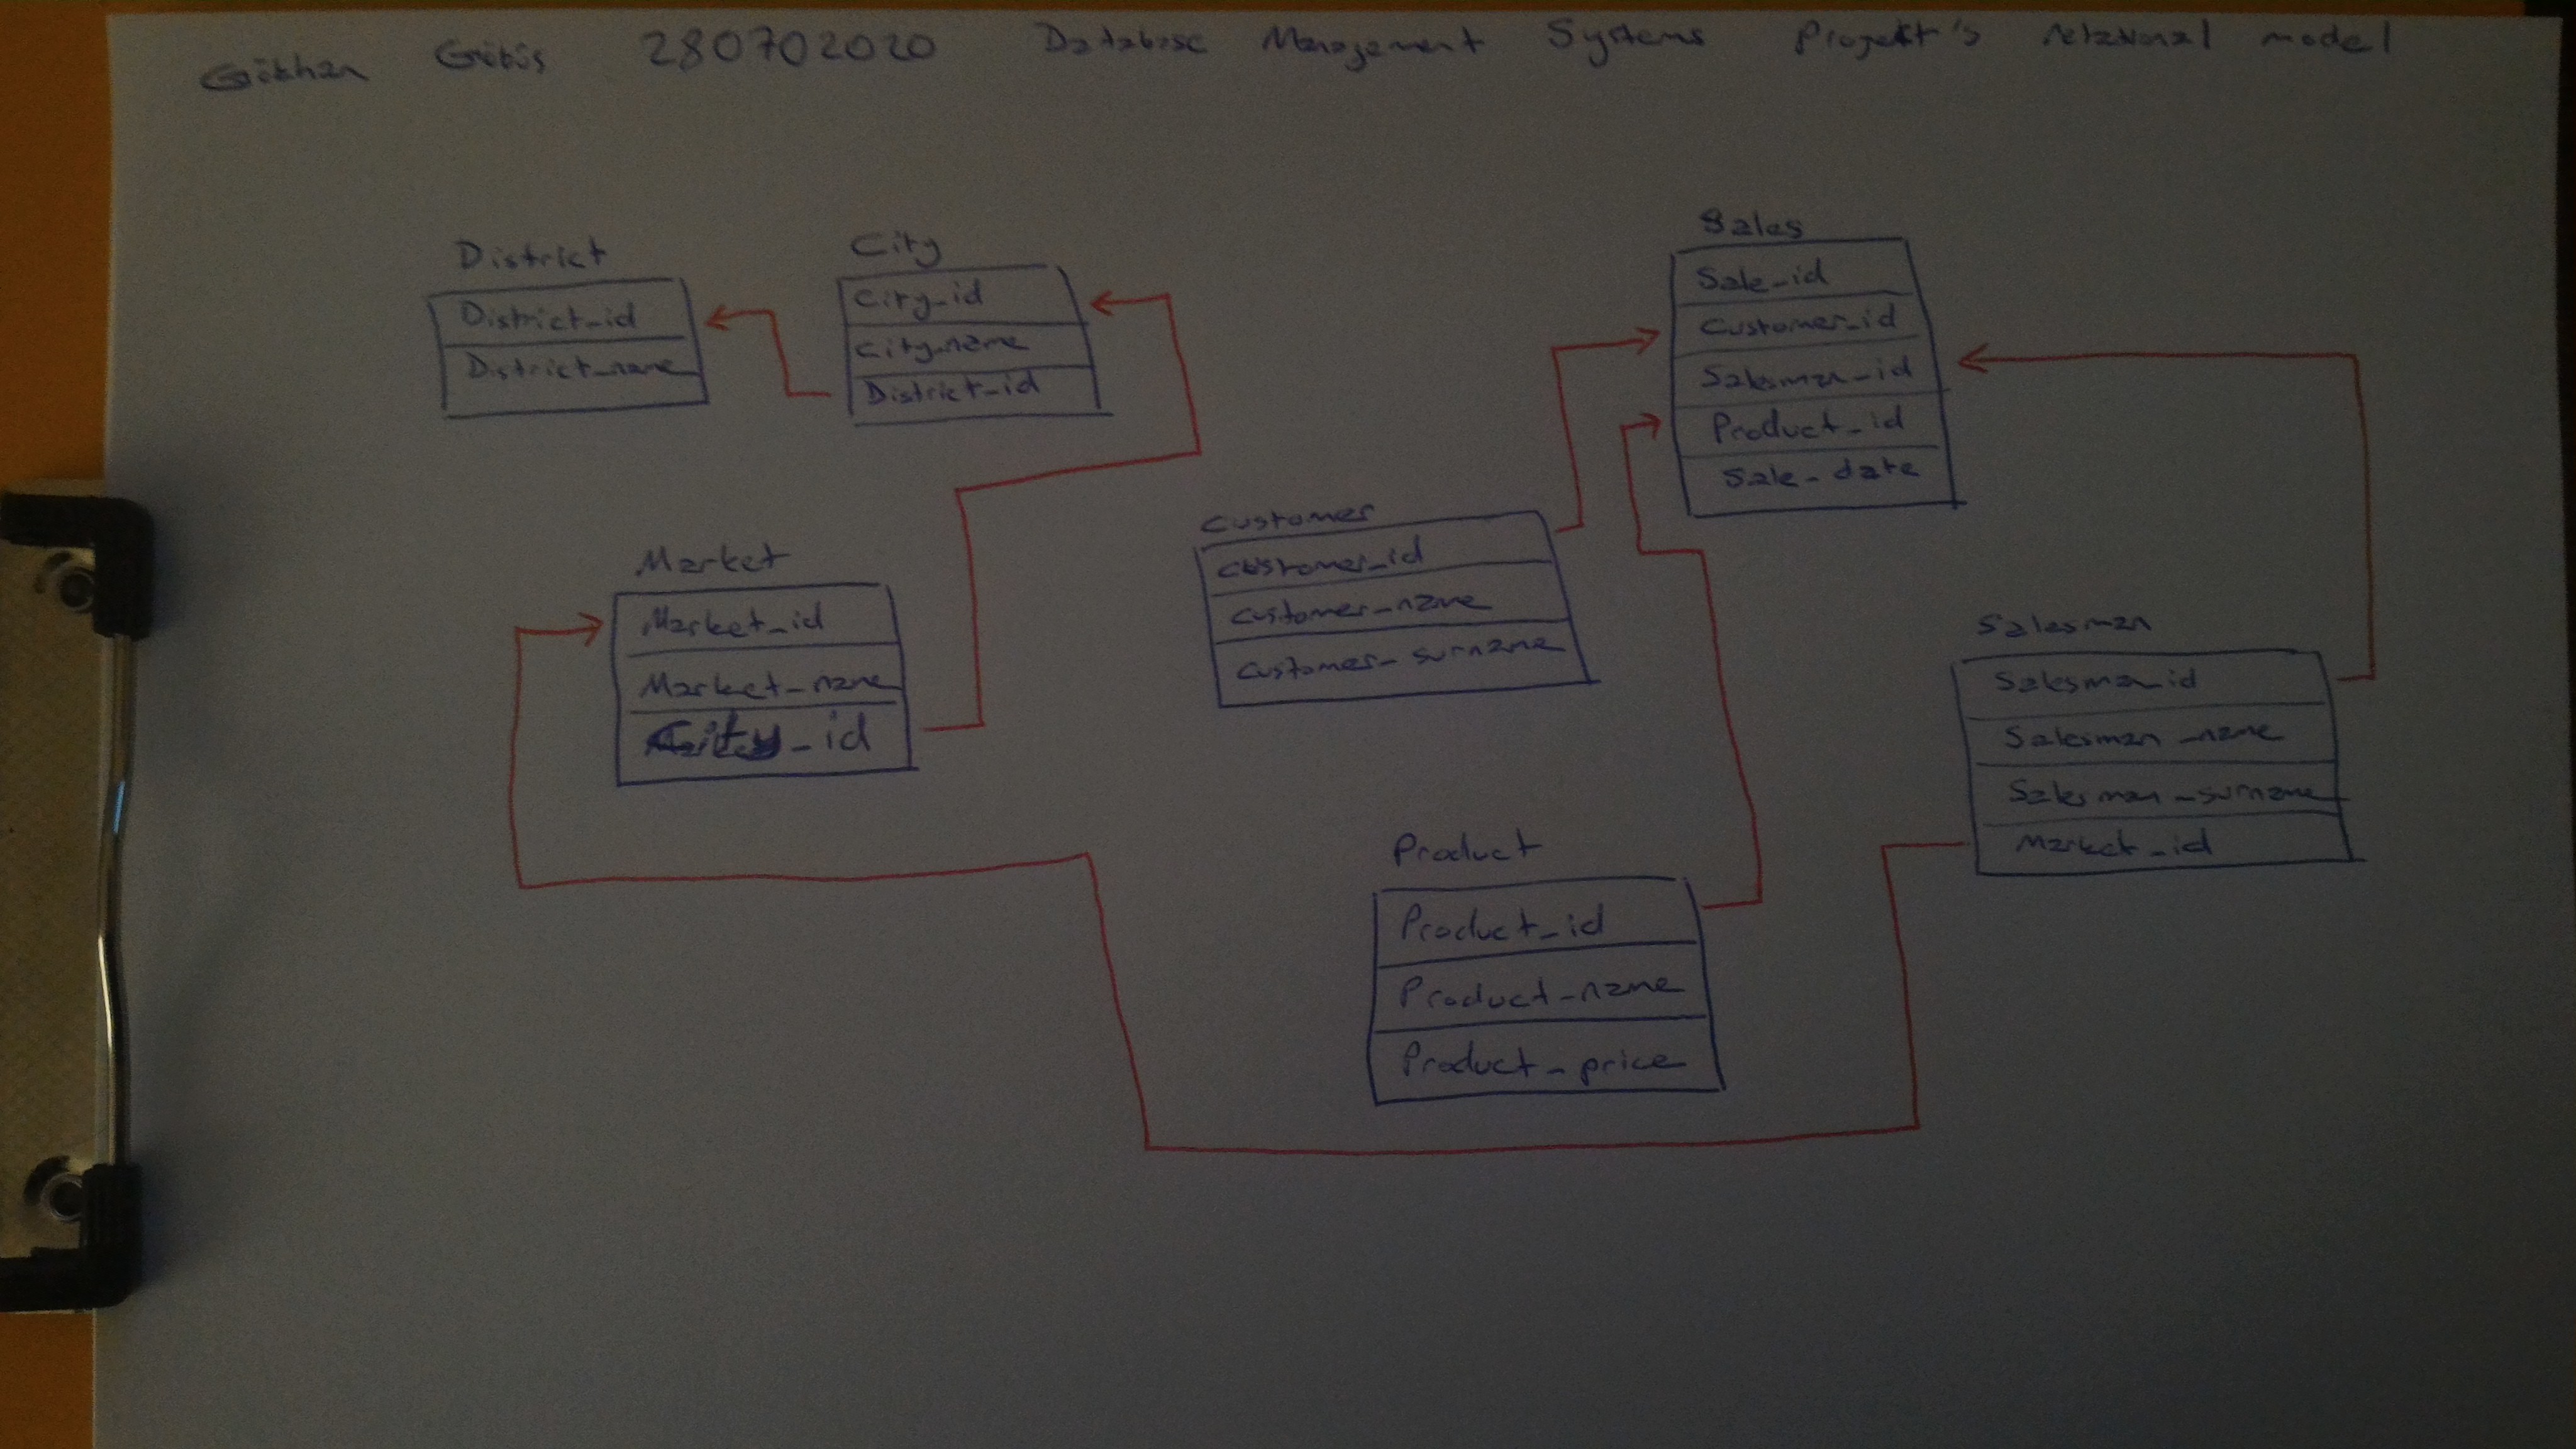 Gökhan 280702020 Database Management Systems Projekt's relational model
District
District_id
District_name
City
City_id
City_name
District_id
Sales
Sale_id
Customer_id
Salesman_id
Product_id
Sale_date
Market
Market_id
Market_name
City_id
Customer
Customer_id
Customer_name
Customer_surname
Salesman
Salesman_id
Salesman_name
Salesman_surname
Market_id
Product
Product_id
Product_name
Product_price